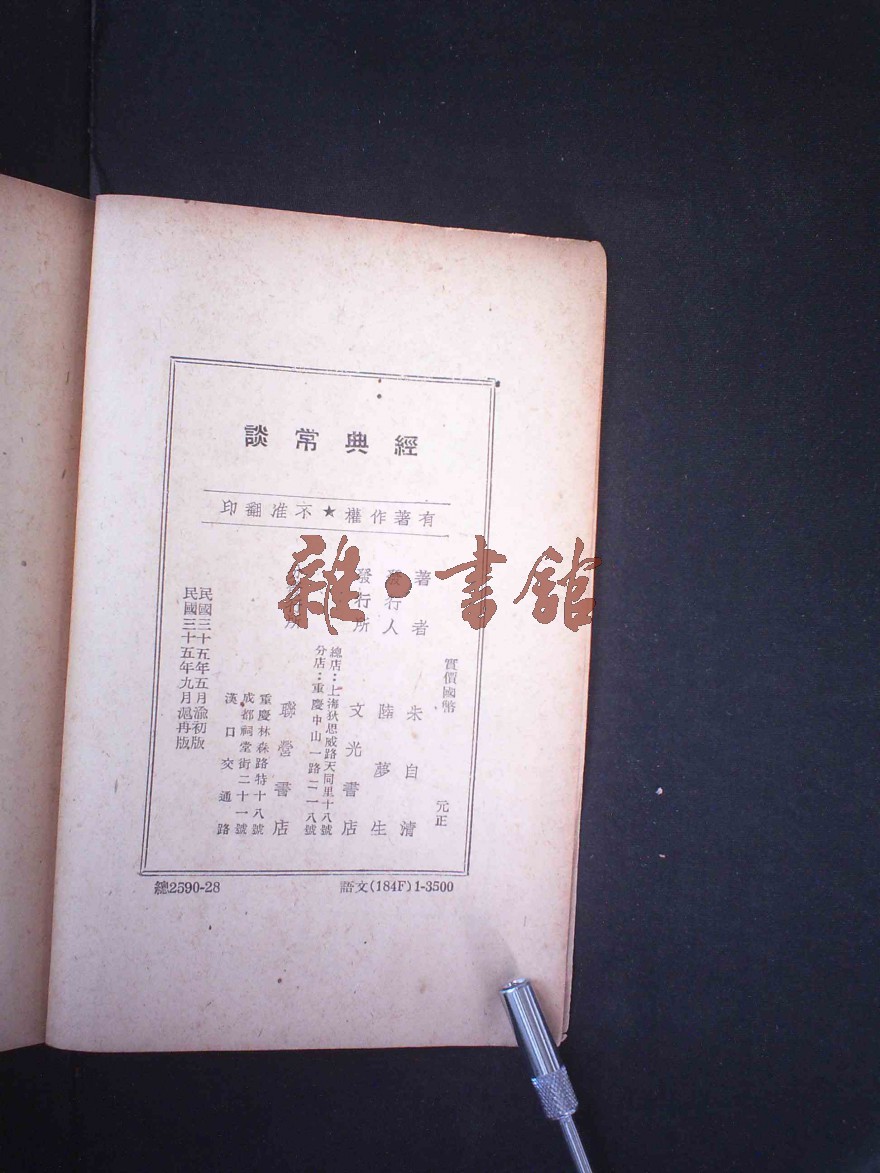 經典常談
有著作權★不准翻印
實價國幣 元正
著者 朱自清
發行人 陸夢生
發行所 文光書店
總店：上海狄思威路天同里十八號
分店：重慶中山一路二一八號
聯營書店
重慶林森路特十八號
成都祠堂街二十一號
漢口交通路
民國三十五年五月渝初版
民國三十五年九月滬再版
語文(184F)1-3500
總2590-28
雜·書館